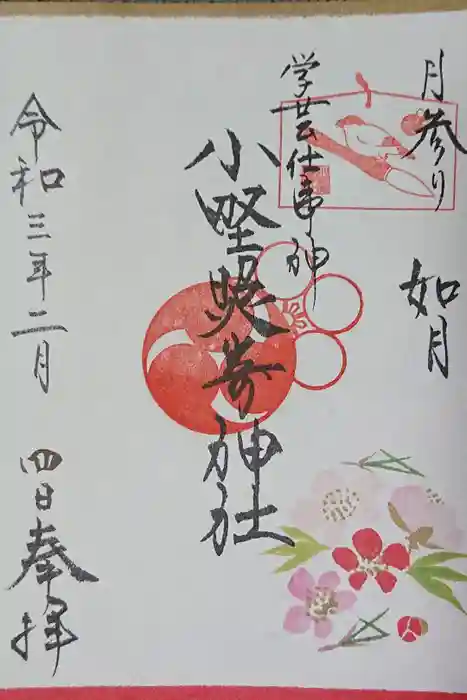 月参り　如月
学芸仕事神
小野照崎神社
令和三年二月　四日奉拝